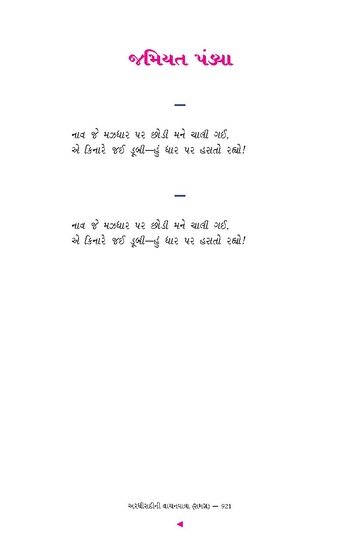 જમિયત પંડ્યા
—
નાવ જે મઝધાર પર છોડી મને ચાલી ગઈ,
એ કિનારે જઈ ડૂબી—હું ધાર પર હસતો રહ્યો!
—
નાવ જે મઝધાર પર છોડી મને ચાલી ગઈ,
એ કિનારે જઈ ડૂબી—હું ધાર પર હસતો રહ્યો!
અરધીસદીની વાચનયાત્રા (સમગ્ર) — 921